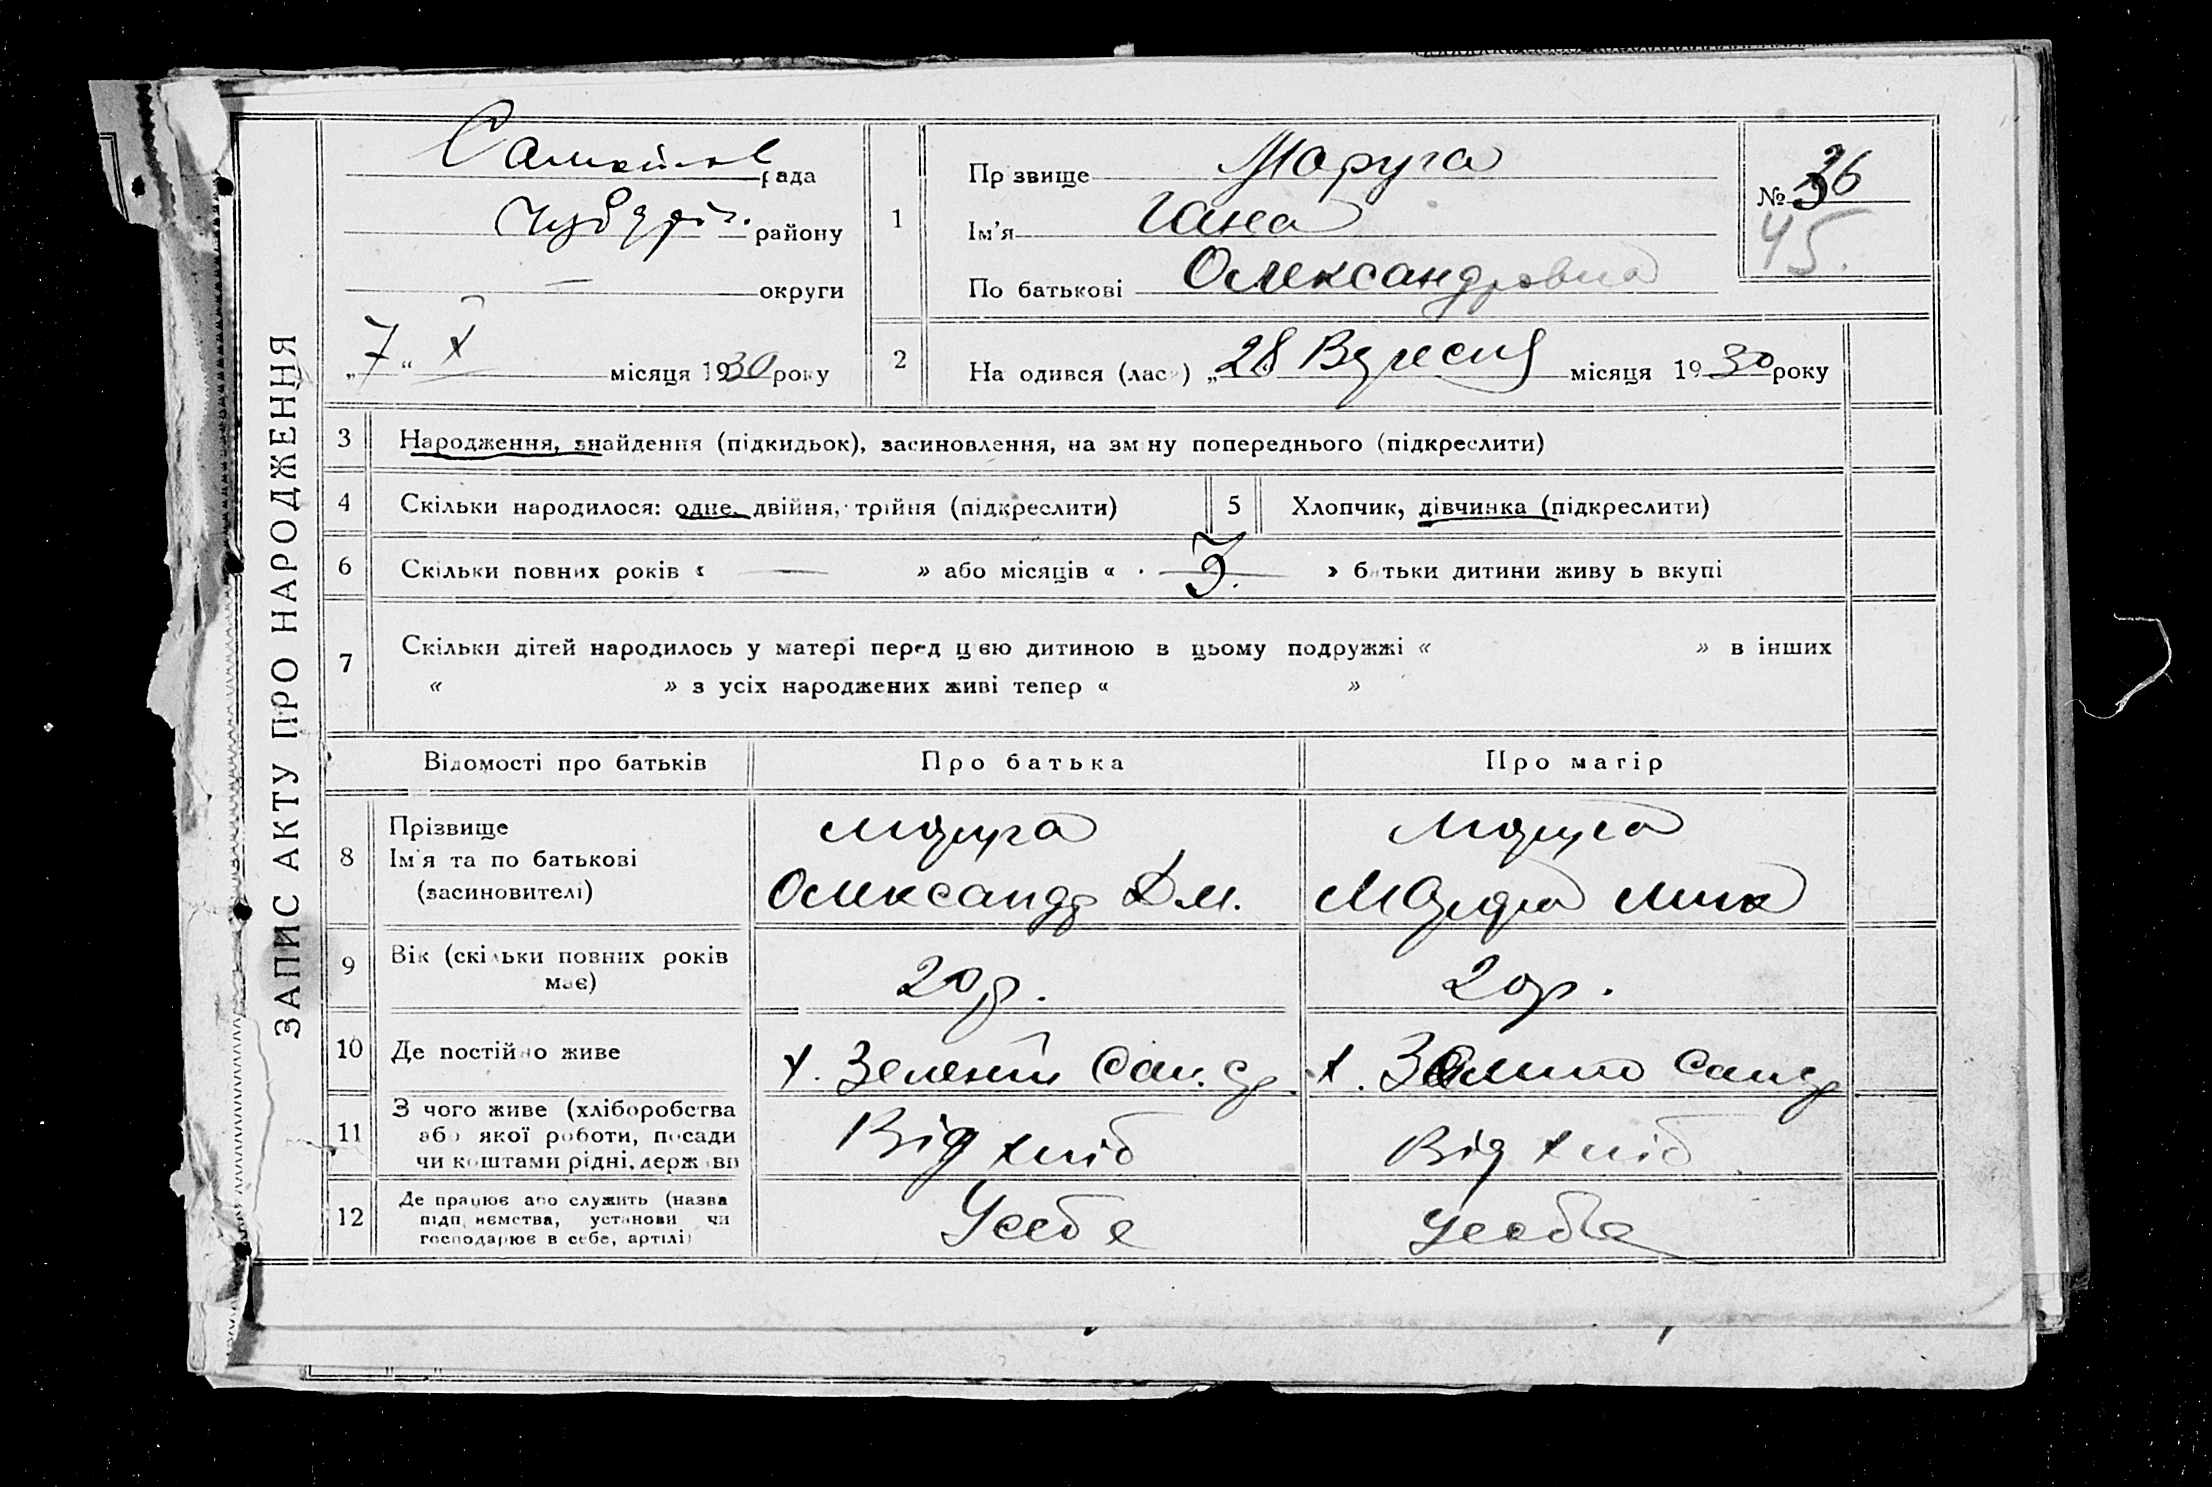 ЗАПИС АКТУ ПРО НАРОДЖЕННЯ
рада
району
— округи
„7“ X місяця 1930 року
1
Прізвище Маруга
Ім'я Гана
По батькові Олександровна
№ 36
45.
2
Народився (лась) „28 Вересня місяця 1930 року
3 Народження, знайдення (підкидьок), засиновлення, на зміну попереднього (підкреслити)
4 Скільки народилося: одне, двійня, трійня (підкреслити) 5 Хлопчик, дівчинка (підкреслити)
6 Скільки повних років « — » або місяців « » батьки дитини живуть вкупі
7 Скільки дітей народилось у матері перед цією дитиною в цьому подружжі « » в інших
« » з усіх народжених живі тепер « »
Відомості про батьків Про батька Про матір
8 Прізвище
Ім'я та по батькові
(засиновителі)
Маруга
Олександр Дм.
Маруга
9 Вік (скільки повних років
має)
20 р.
20 р.
10 Де постійно живе
х. Зелений
х.
11 З чого живе (хліборобства
або якої роботи, посади
чи коштами рідні, держави
Від хліб
Від хліб
12 Де працює або служить (назва
підприємства, установи чи
господарює в себе, артілі)
У себе
У себе